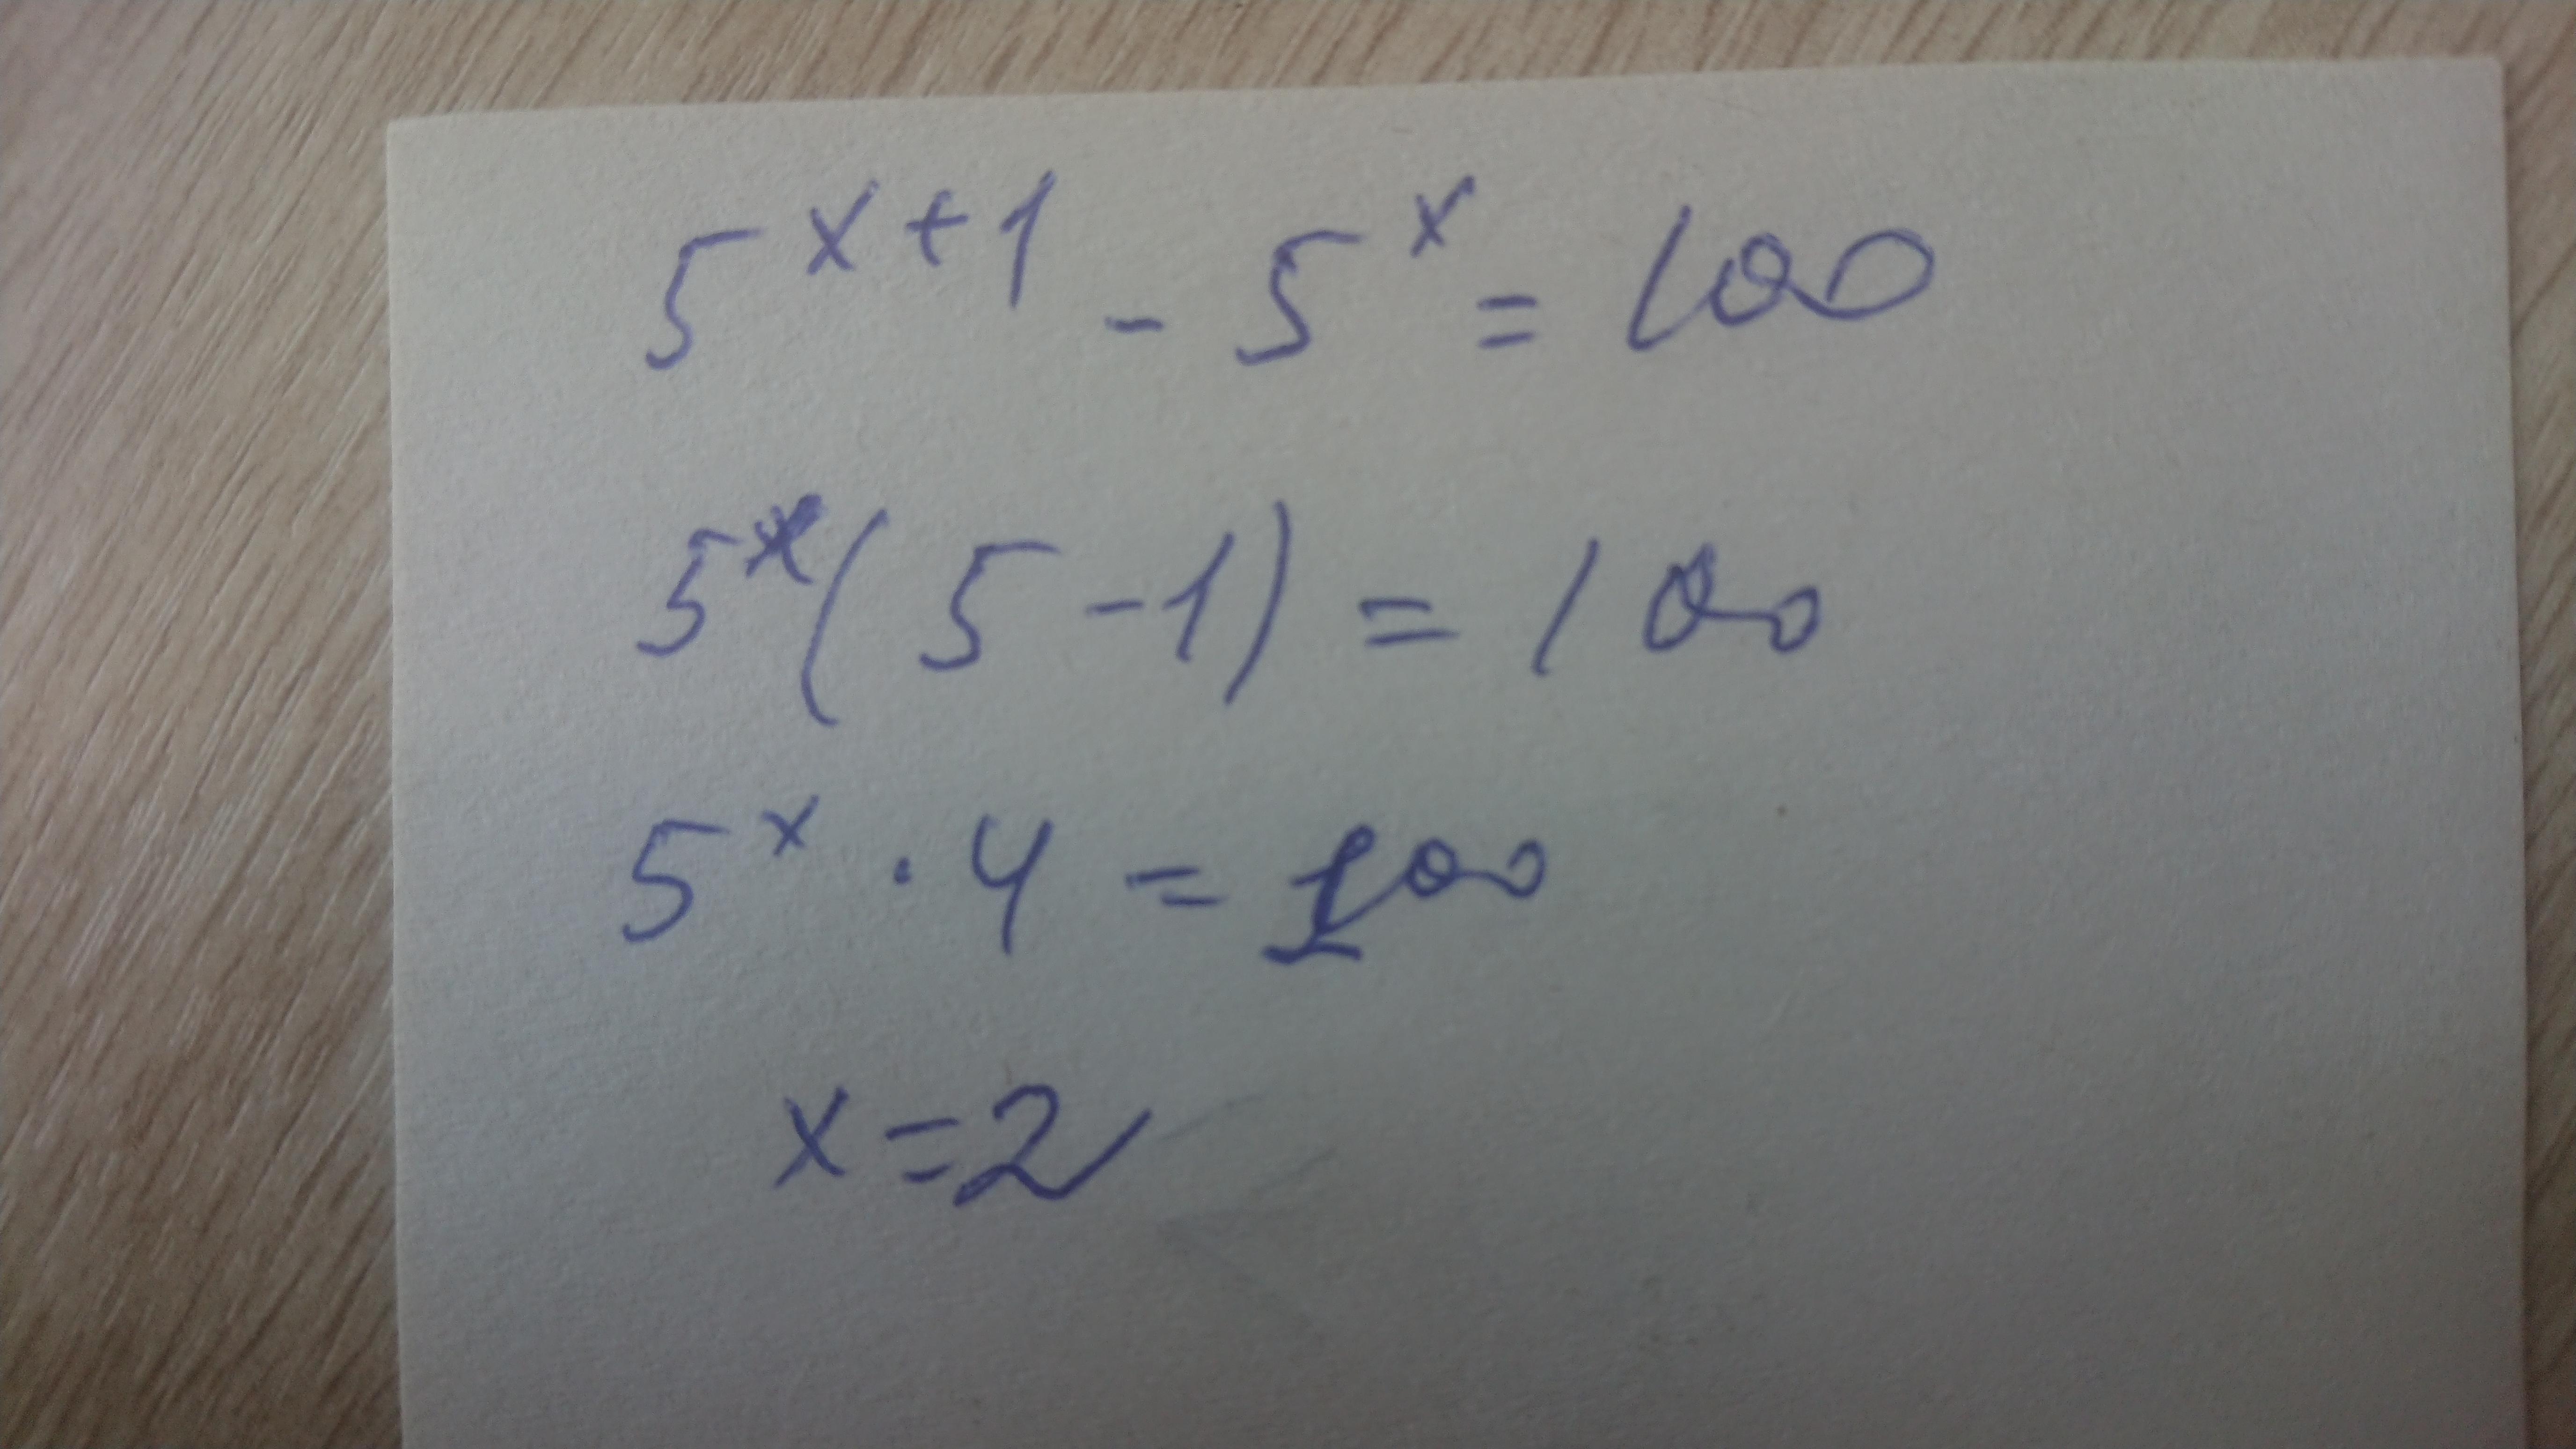 5^{x+1} - 5^x = 100
5^x(5-1) = 100
5^x · 4 = 100
x=2